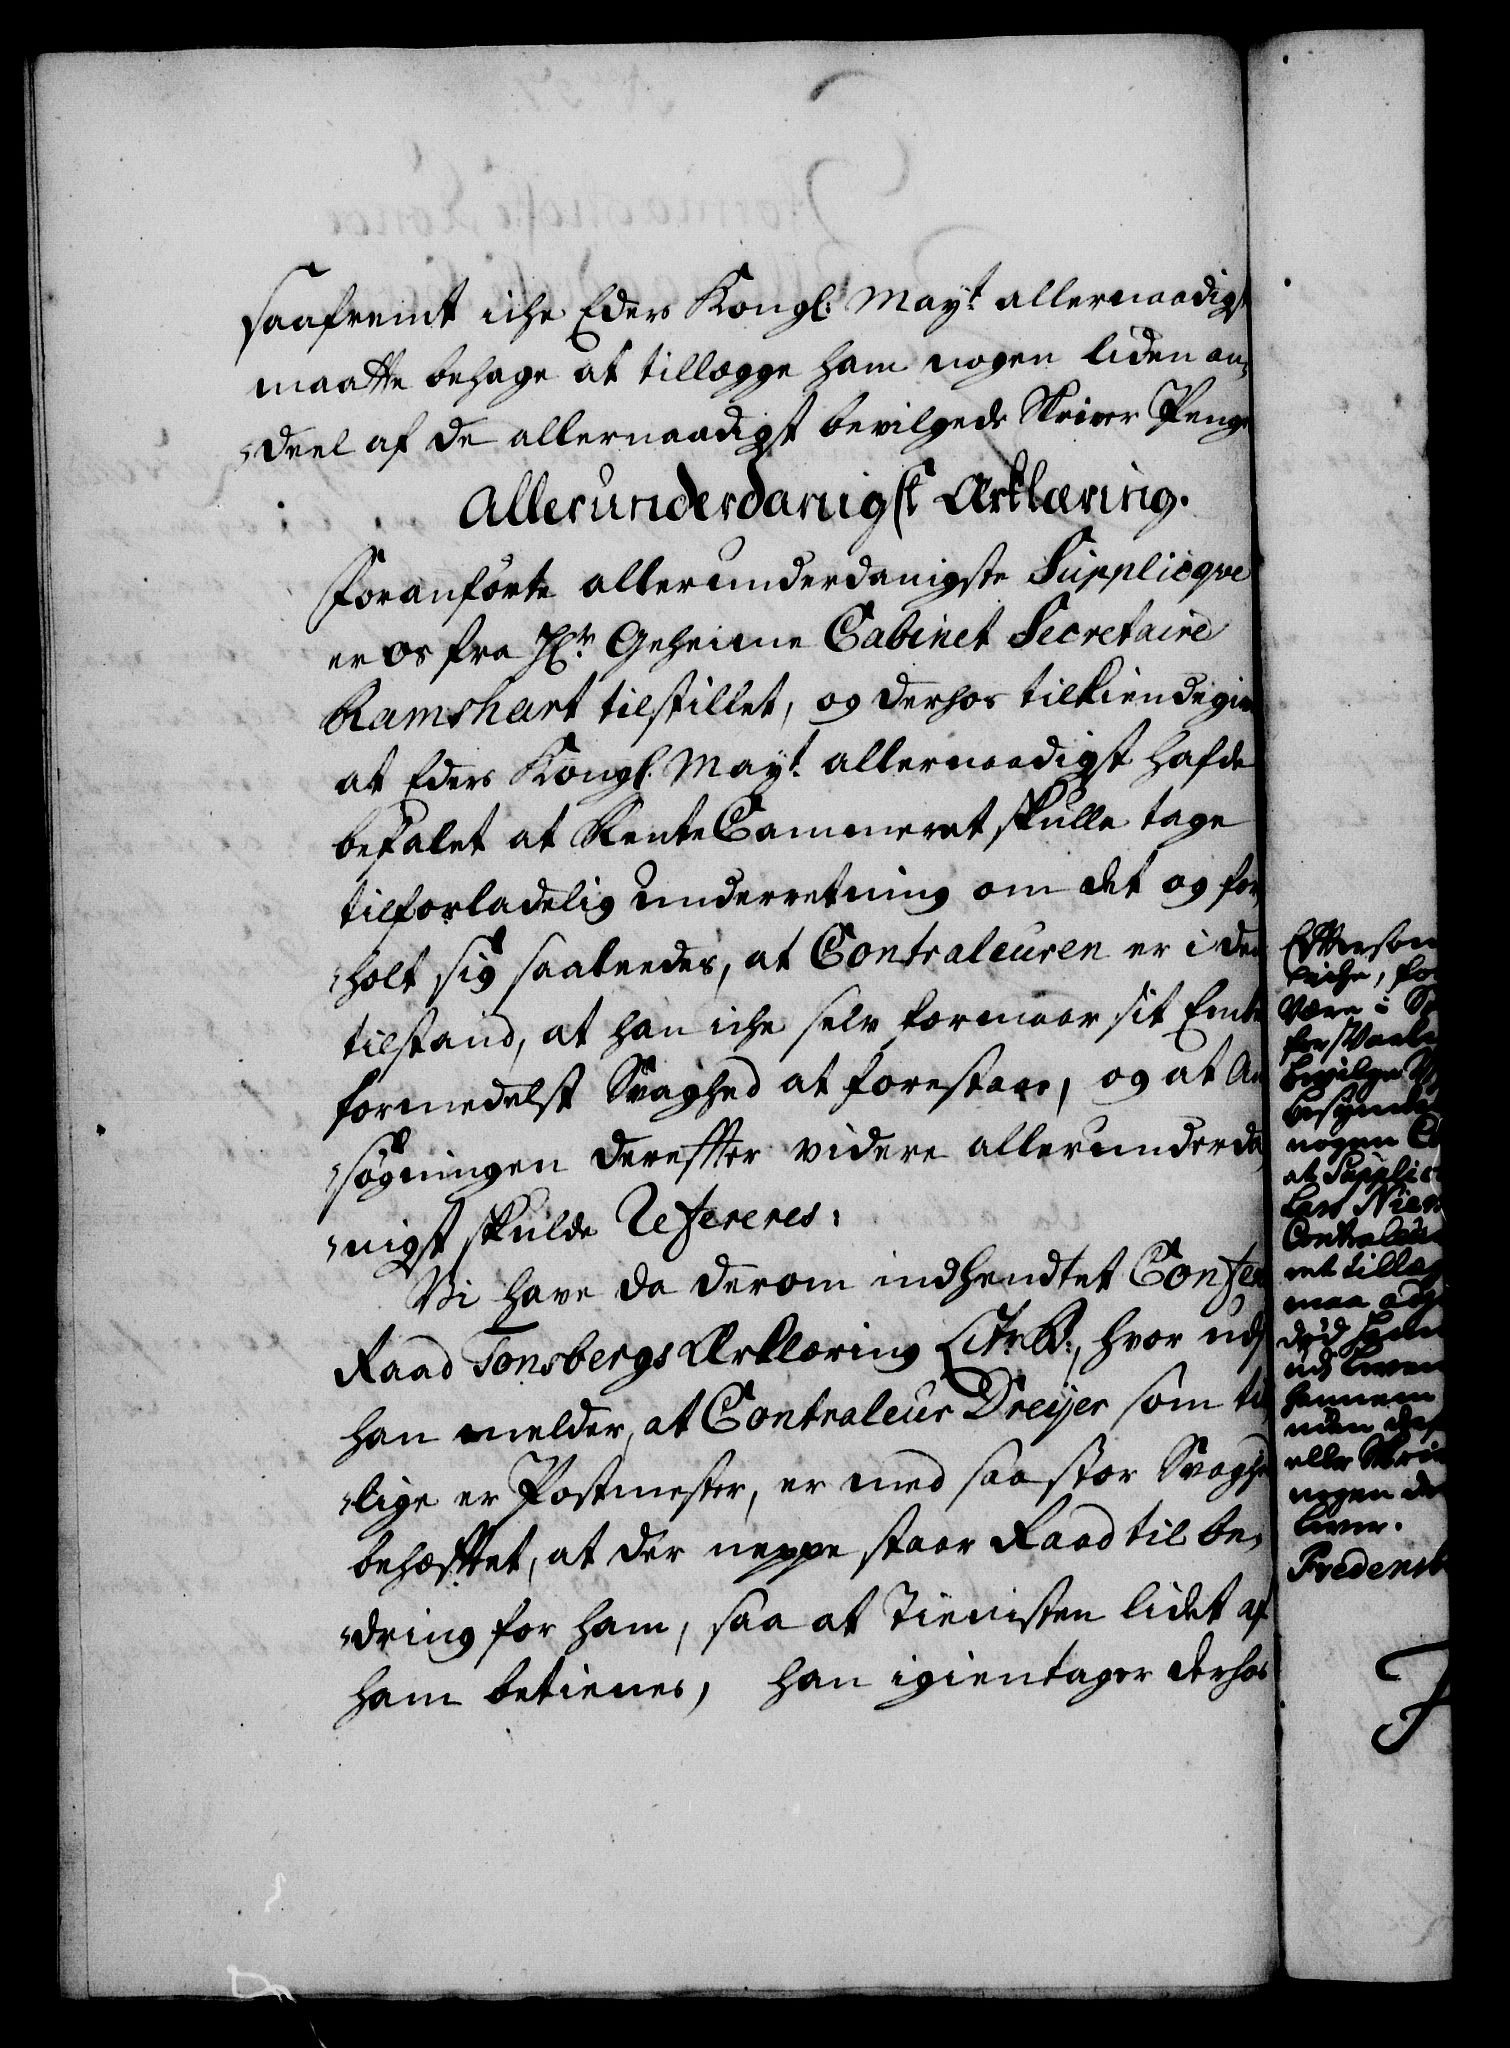 saafremt iche Eders Kongl: Mayt. allernaadigst
maatte behage at tillegge ham nogen liden an-
-deel af de allernaadigst bevilgede Skriver Penge
Allerunderdanigst Ærklæring.
Foranførte allerunderdanigste Supplicqve
er os fra Hr. Geheime Cabinet Secretaire
Ramshart tilstillet, og derhos tilkiendegivet
at Eders Kongl. Mayt. allernaadigst hafde
befalet at Rente Cammeret skulle tage
tilforladelig underretning om det og for-
-holt sig saaledes, at Contraleuren er i den
tilstand, at han iche selv formaar sit Embede
formedelst Svaghed at forestaae, og at An-
-søgningen derefter videre allerunderda-
-nigst skulde Refereres:
Vi have da derom indhendtet Conferentz
Raad Tonsbergs Ærklæring Litr. B:, hvor udj
han melder, at Contraleur Dreijer som til-
-lige er Postmester, er med saa stor Svaghed
behæfftet, at der neppe staar Raad til be-
-dring for ham, saa at Tienisten lidet af
ham betienes, han igientager derhos
Effterson
iche, for
være i
bevilge
nogen
at Supplic
Lars Niels
Contraleur
ret tillag
maa
død ham
udj
hannem
uden des
eller Skriv
nogen de
lever.
Fredensb
F